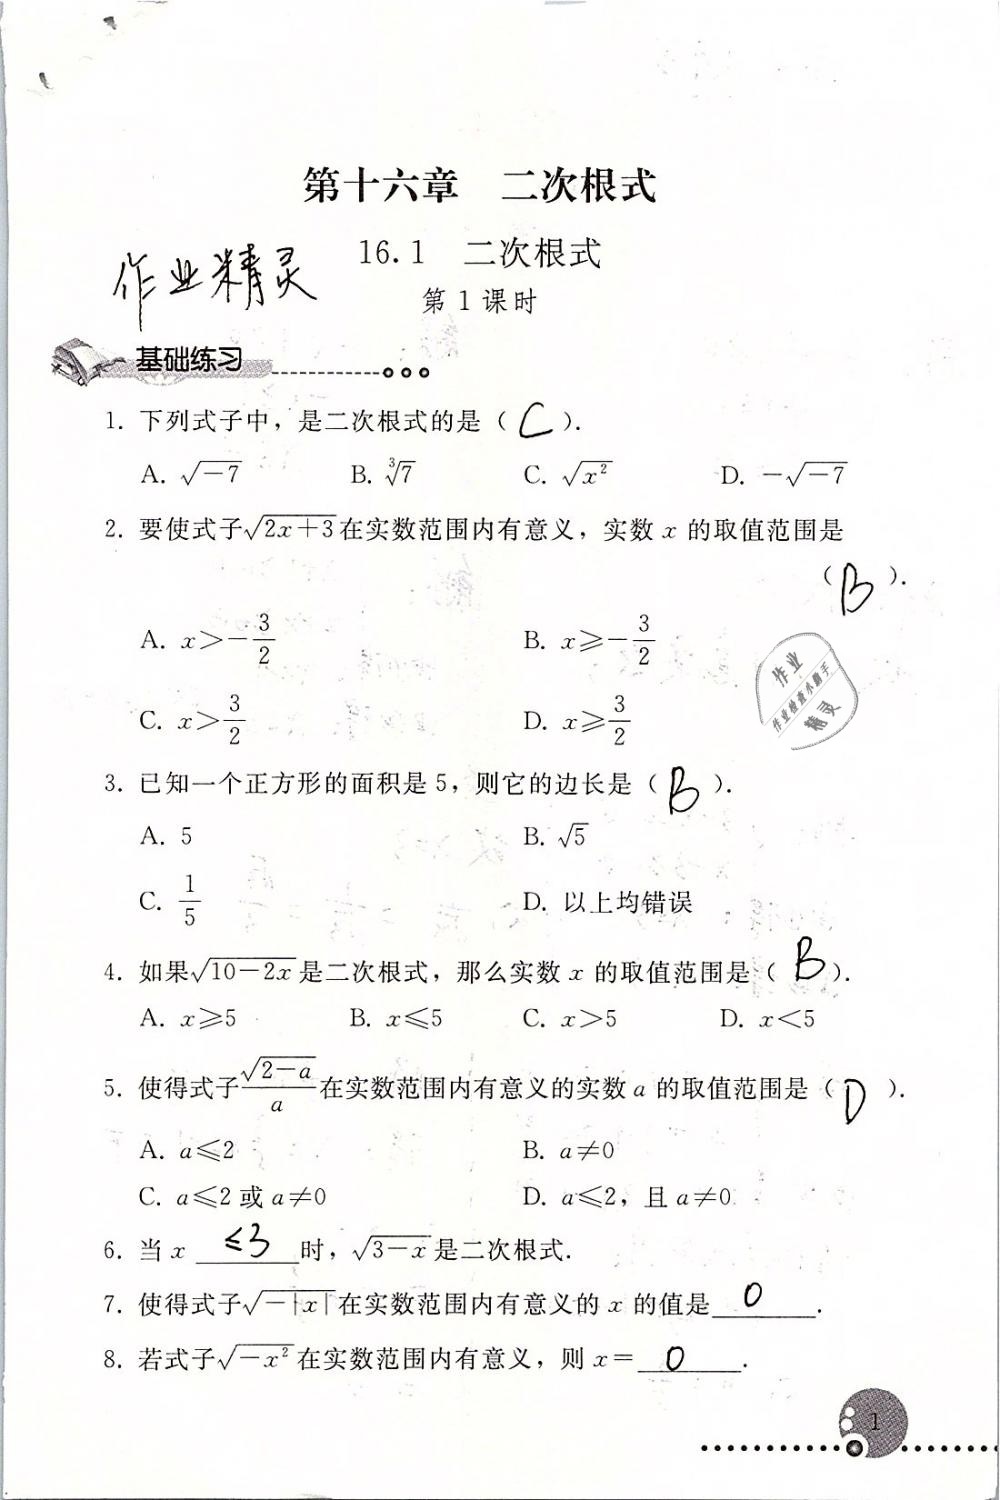 第十六章 二次根式
16.1 二次根式
作业精灵
第 1 课时
基础练习
1. 下列式子中，是二次根式的是（ C ）.
A. √(-7) B. ∛7 C. √(x²) D. -√(-7)
2. 要使式子√(2x+3)在实数范围内有意义，实数 x 的取值范围是
（ B ）.
A. x>-3/2 B. x≥-3/2
C. x>3/2 D. x≥3/2
作业
作业检查小助手
精灵
3. 已知一个正方形的面积是 5，则它的边长是（ B ）.
A. 5 B. √5
C. 1/5 D. 以上均错误
4. 如果√(10-2x)是二次根式，那么实数 x 的取值范围是（ B ）.
A. x≥5 B. x≤5 C. x>5 D. x<5
5. 使得式子√(2-a)/a在实数范围内有意义的实数 a 的取值范围是（ D ）.
A. a≤2 B. a≠0
C. a≤2 或 a≠0 D. a≤2，且 a≠0
6. 当 x ≤3 时，√(3-x)是二次根式.
7. 使得式子√(-|x|)在实数范围内有意义的 x 的值是 0 .
8. 若式子√(-x²)在实数范围内有意义，则 x= 0 .
1